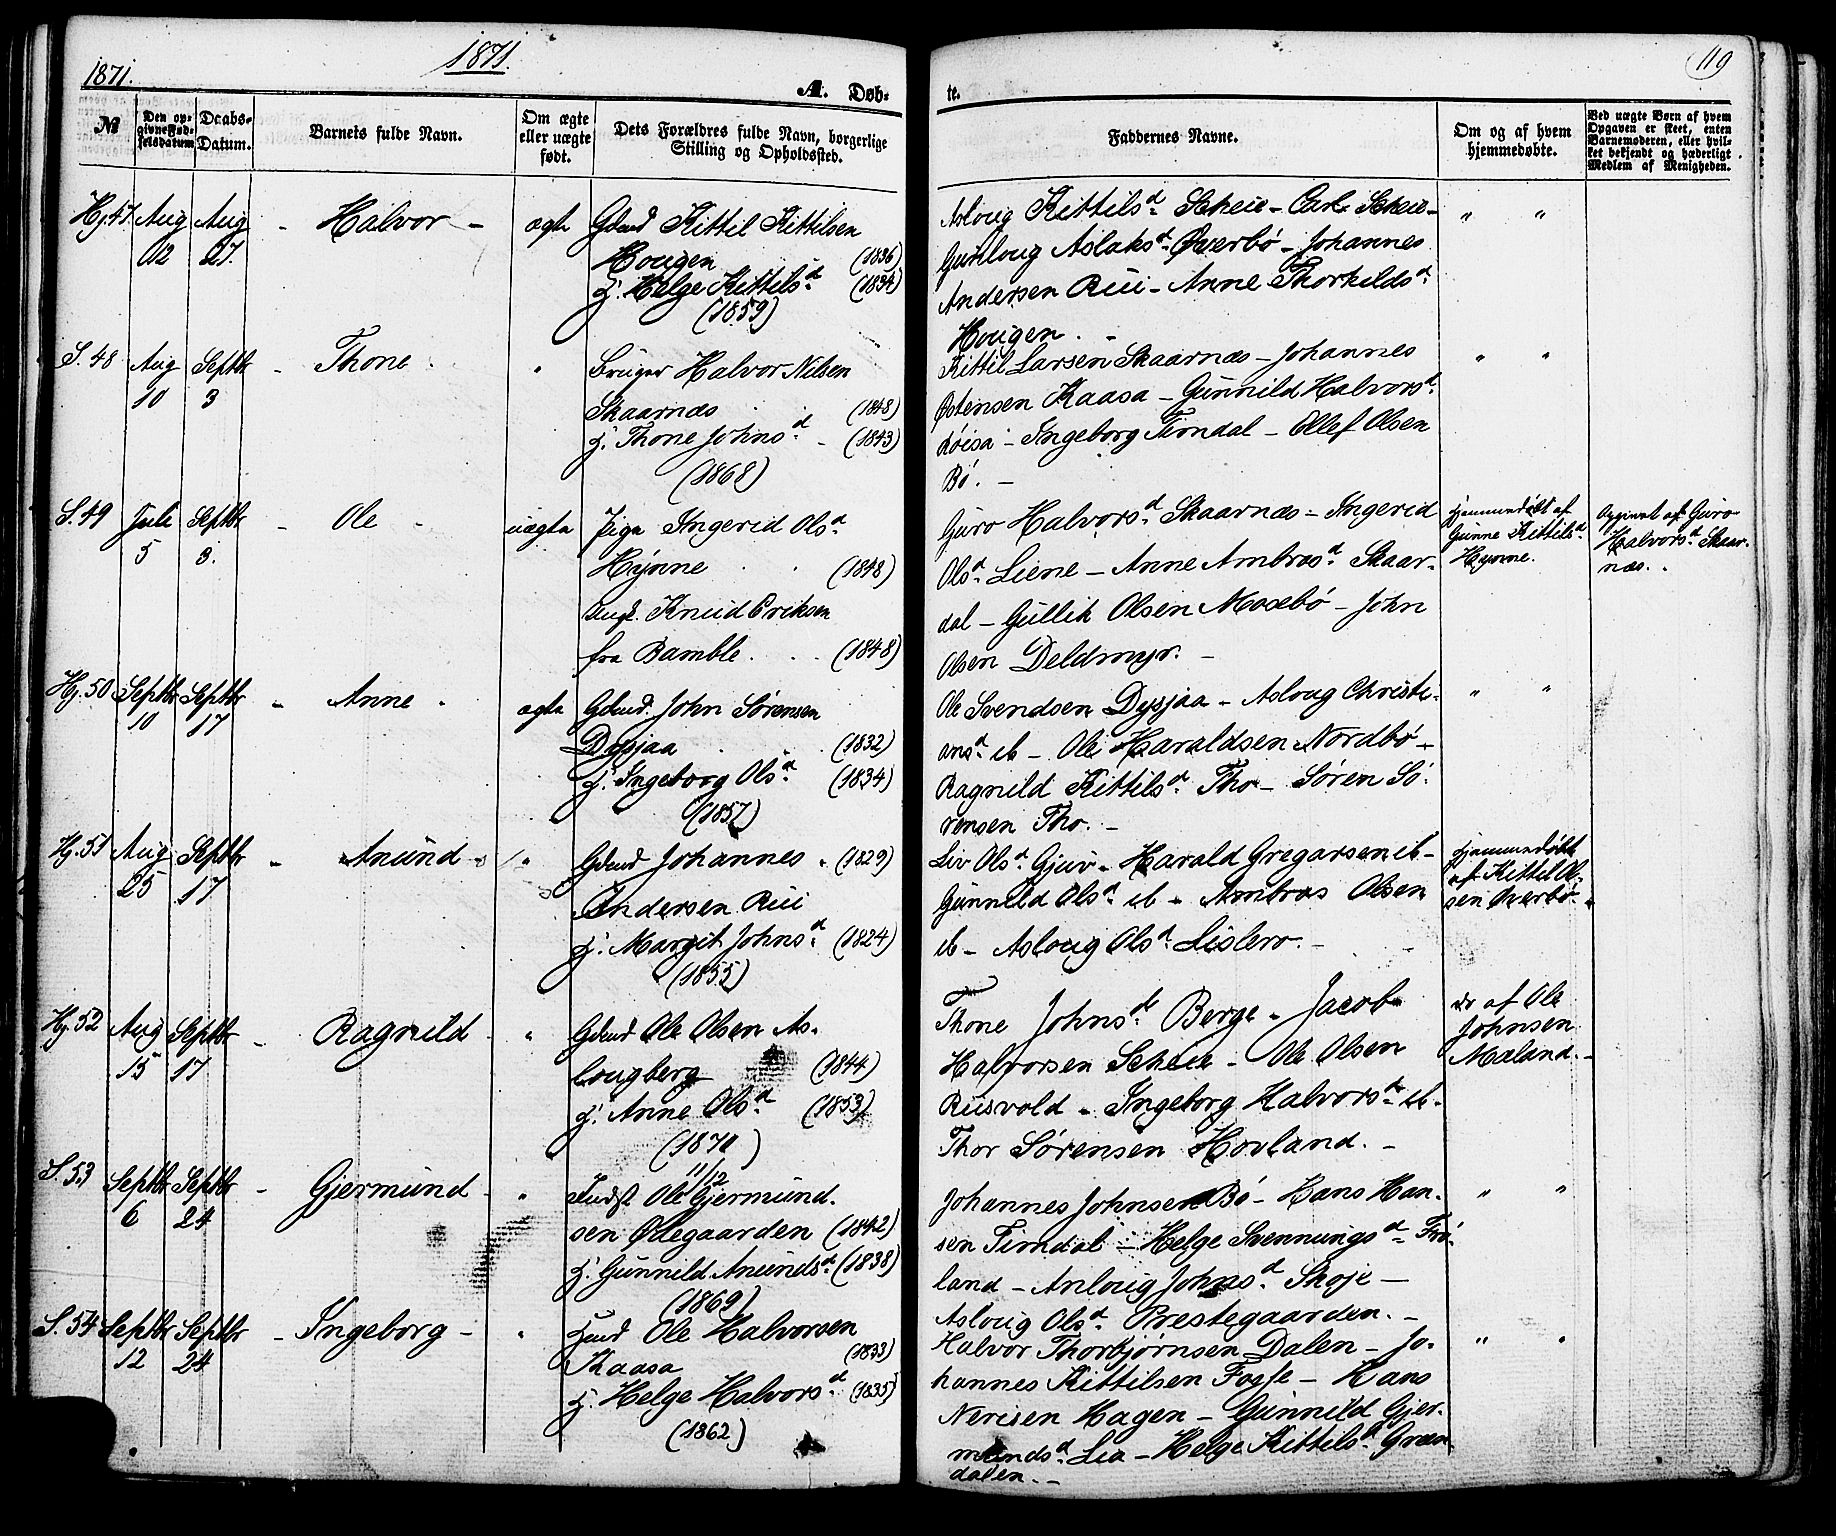 1871.
1871.
119
A. Døb-
te.
№
Den op-
givne Fød-
selsdatum
Daabs-
Datum.
Barnets fulde Navn.
Om ægte
eller uægte
født.
Dets Forældres fulde Navn, borgerlige
Stilling og Opholdssted.
Faddernes Navne.
Om og af hvem
hjemmedøbte.
Ved uægte Børn af hvem
Opgaven er skeet, enten
Barnemoderen, eller hvil-
ket bekjendt og hæderligt
Medlem af Menigheden.
Hj. 47. Aug 12 Aug 27. - Halvor - ægte
Gdmd Kittil Kittilsen
Hougen (1836)
H. Helge Kittilsd (1834)
(1859)
Asloug Kittilsd Scheie - Carl Scheie -
Gunloug Aslaksd Øverbø - Johannes
Andersen Rui - Anne Thorkildsd
Hougen. -
" "
S. 48 Aug 10 Septbr 3 - Thone "
Bruger Halvor Nilsen
Skaarnæs (1848)
H. Thone Johnsd - (1843)
(1868)
Kittil Larsen Skaarnæs - Johannes
Østensen Kaasa - Gunnild Halvorsd
- Ingeborg Tirndal - Ellef Olsen
Bø. -
" "
S. 49 Juli 5 Septbr 3. - Ole - uægte
Pige Ingerid Olsd
Hynne (1848)
Ungk. Knud Eriksen
fra Bamble (1848)
Guro Halvorsd Skaarnæs - Ingerid
Olsd Liene - Anne Ambrosd Skaar-
dal - Gullik Olsen Mosebø - John
Olsen Deldmyr. -
Hjemmedøbt af
Gunne Kittilsd
Hynne.
Opgivet af Guro
Halvorsd Skaar-
næs.
Hj. 50 Septbr 10 Septbr 17 - Anne - ægte
Gdmd. John Sørensen
Dysjaa (1832)
H. Ingeborg Olsd (1834)
(1857)
Ole Svendsen Dysjaa - Asloug Christi-
ansd ib - Ole Haraldsen Nordbø -
Ragnild Kittilsd Tho - Søren Sø-
rensen Tho. -
" "
Hj. 51 Aug 25 Septbr 17 - Anund - "
Gdmd Johannes (1829)
Andersen Rui
H. Margit Johnsd (1824)
(1855)
Liv Olsd Gjuv - Harald Gregarsen ib -
Gunnild Olsd ib - Ambros Olsen
ib - Asloug Olsd Lislero. -
Hjemmedøbt
af Kittil Ol-
sen Øverbø. "
Hj. 52 Aug 15 Septbr 17 - Ragnild - "
Gdmd Ole Olsen As-
lougberg (1844)
H. Anne Olsd (1853)
(1870)
11/12
Thone Johnsd Berge - Jacob
Halvorsen Scheie - Ole Olsen
Riisvold - Ingeborg Halvorsd ib -
Thor Sørensen Hovland. -
do af Ole
Johnsen
Mæland. -
S. 53 Septbr 6 Septbr 24 - Gjermund - "
Inderst Ole Gjermund-
sen Ødegaarden (1842)
H. Gunnild Anundsd (1838)
(1869)
Johannes Johnsen Bø - Hans Han-
sen Tirndal - Helge Svennungsd Frø-
land - Anloug Johnsd Skoje -
Asloug Olsd Prestegaarden. -
" "
S. 54 Septbr 12 Septbr 24 - Ingeborg - "
Ole Halvorsen
Kaasa (1833)
H. Helge Halvorsd (1835)
(1862)
Halvor Thorbjørnsen Dalen - Jo-
hannes Kittilsen Fosse - Hans
Nerisen Hagen - Gunnild Gjer-
mundsd Lia - Helge Kittilsd Græn-
dalen. -
" "